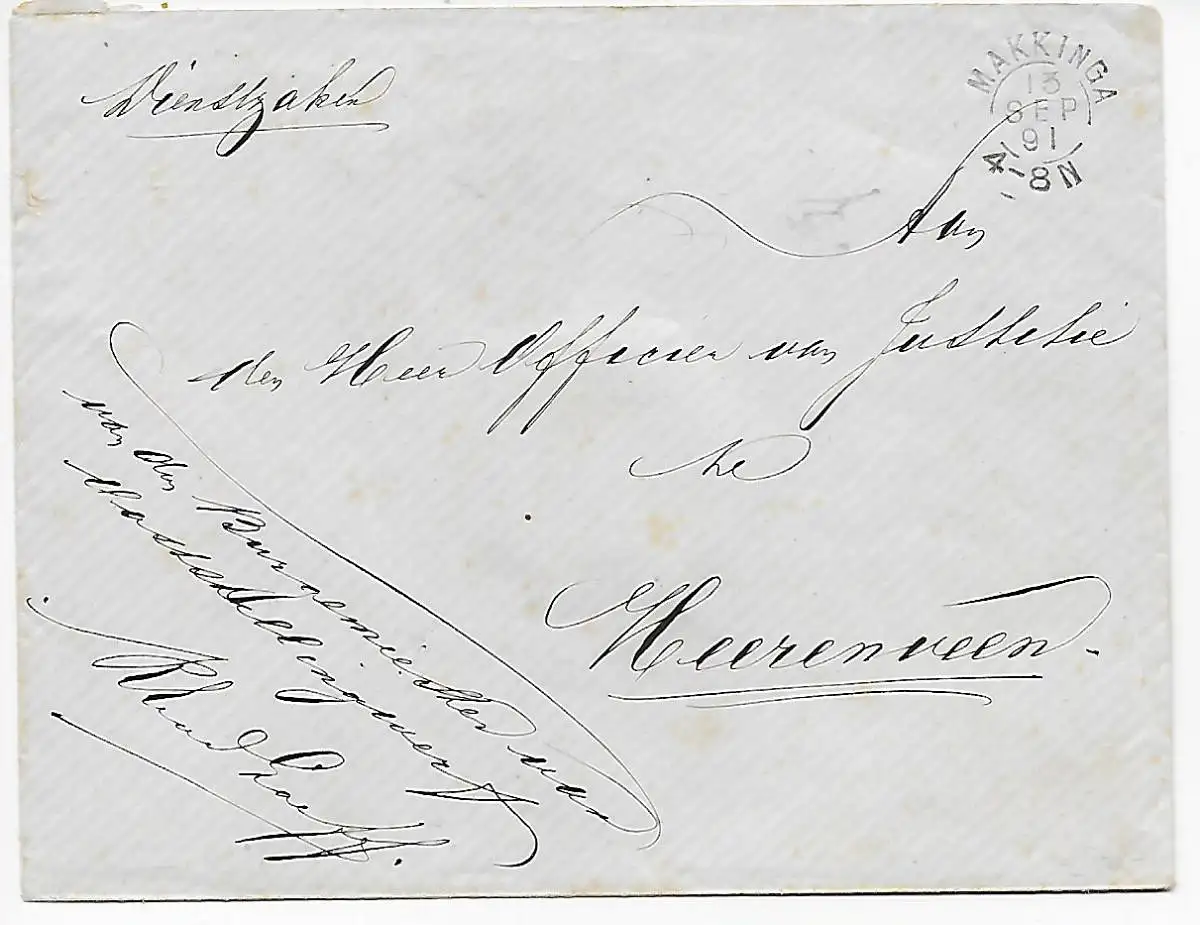 Dienstzaken
MAKKINGA
13
SEP
91
4-8N
Aan
den Heer Officier van Justitie
te
Heerenveen.
van den Burgemeester van
Ooststellingwerf